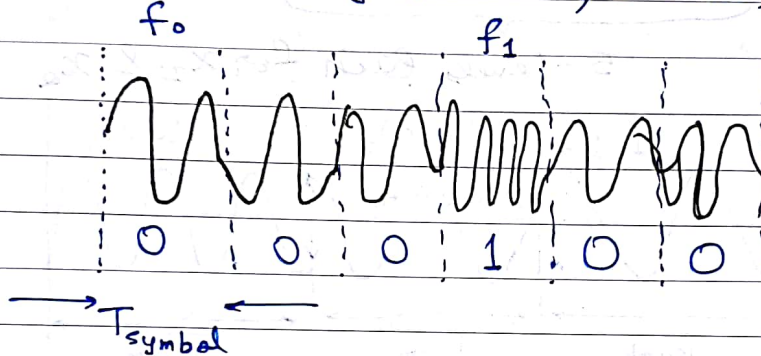 f₀ f₁
0 0 0 1 0 0
Tsymbol